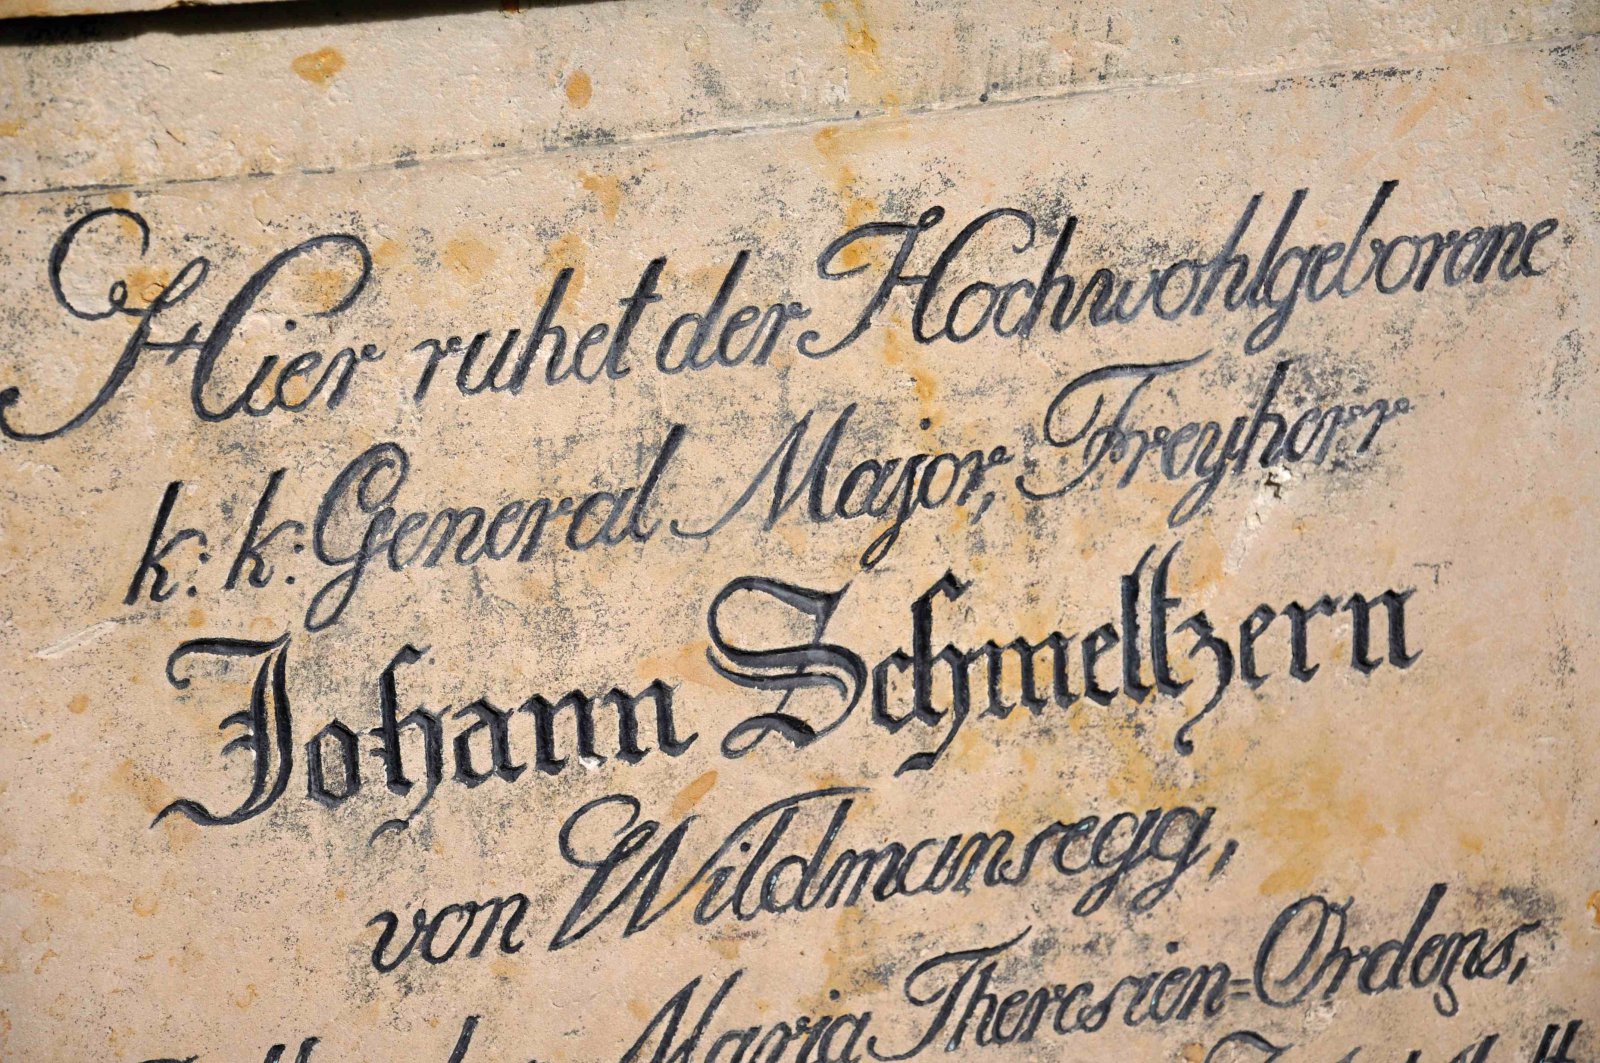 Hier ruhet der Hochwohlgeborene
k: k: General Major, Freyherr
Johann Schmeltzern
von Wildmansegg,
Maria Theresien=Ordens,